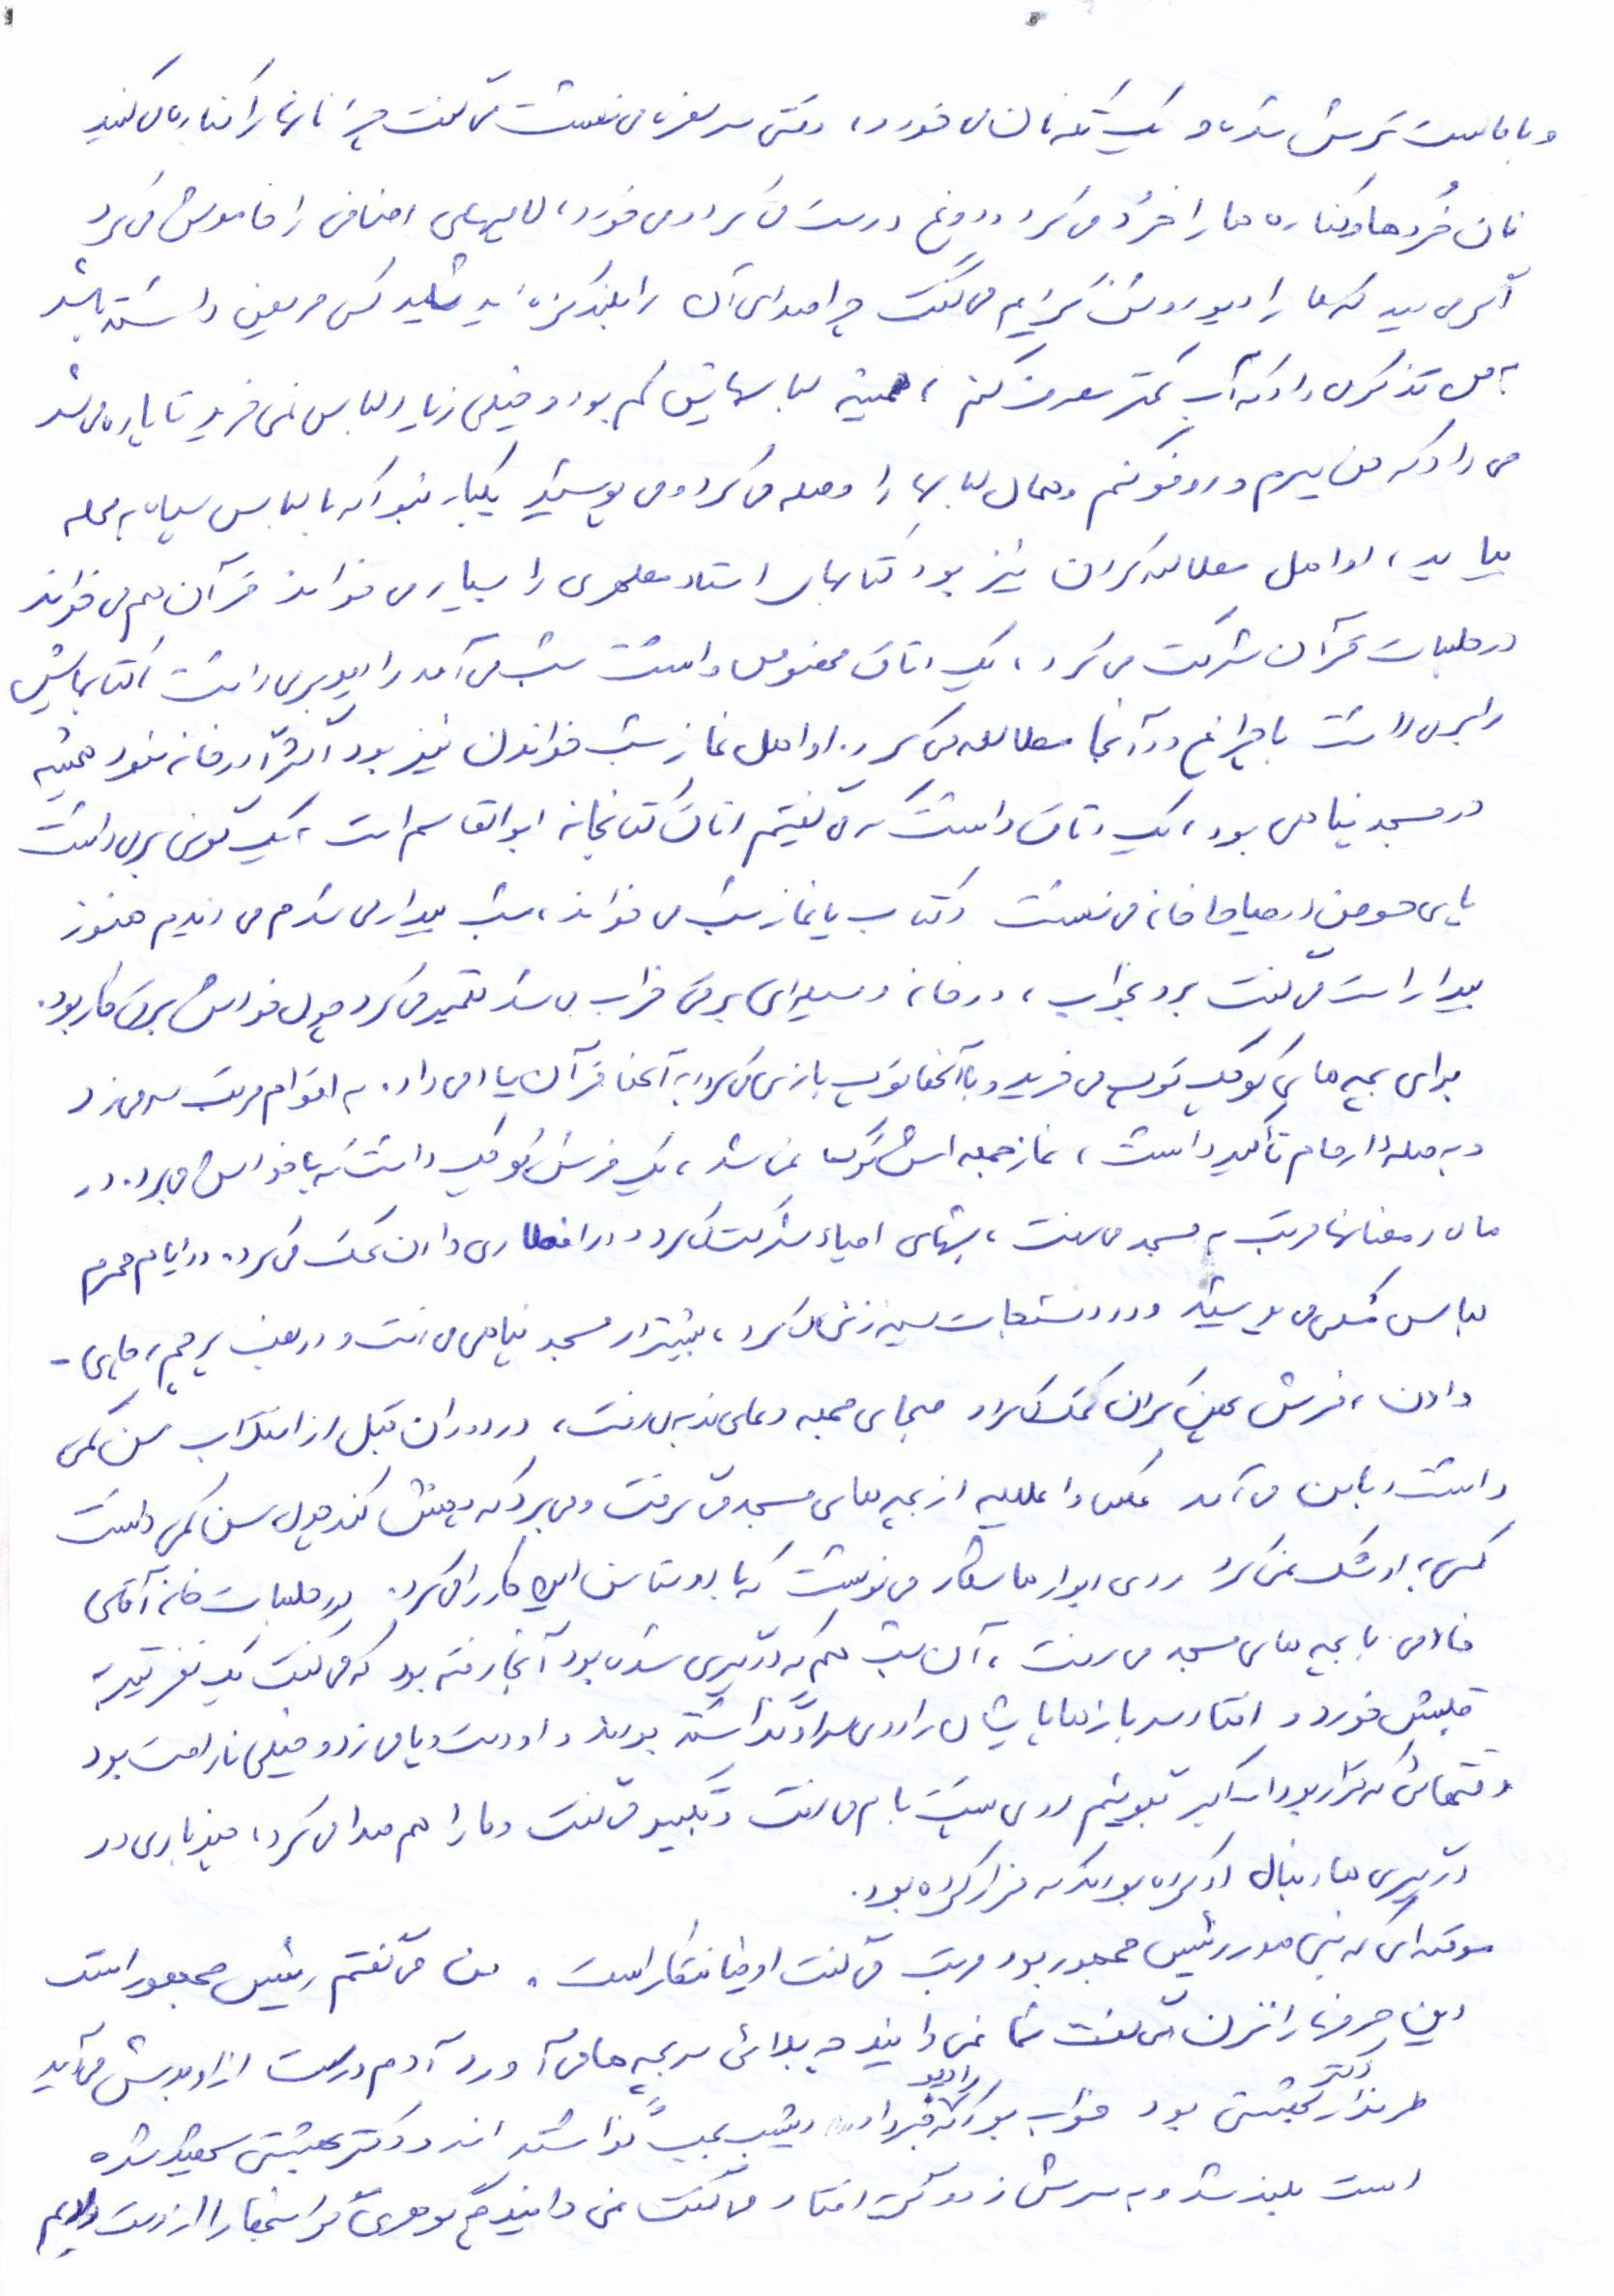 و با ماست ترش شده و یک تکه نان می خورد، وقتی سر سفره می نشست می گفت چرا نانها را کناره می کنید
نان خُردها و کناره ها را خُرد می کرد و دوغ درست می کرد و می خورد، لامپهای اضافی را خاموش می کرد
اگر می دید که ما رادیو روشن کرده ایم می گفت چرا صدای آن را بلند کرده اید شاید کسی مریض داشته باشد
به من تذکر می داد که آب کمتر مصرف کنم، همیشه لباسهایش کم بود و خیلی زیاد لباس نمی خرید تا پاره می شد
می داد که من ببرم و رفو کنم و همان لباسها را وصله می کرد و می پوشید یکبار نبود که با لباس سپاه به محله
بیاید، او اهل مطالعه کردن نیز بود کتابهای استاد مطهری را بسیار می خواند قرآن هم می خواند
در جلسات قرآن شرکت می کرد، یک اتاق مخصوص داشت شب می آمد رادیو برمی داشت، کتابهایش
را برمی داشت با چراغ در آنجا مطالعه می کرد. او اهل نماز شب خواندن نیز بود اکثراً در خانه نبود همیشه
در مسجد بود، یک اتاق داشت که می گفتیم اتاق کتابخانه ابوالقاسم است، یک برمی داشت
پای حوض در حیاط خانه می نشست و کتاب یا نماز شب می خواند، شب بیدار می شدم می دیدم هنوز
بیدار است می گفت برو بخواب، در خانه وسیله ای برقی خراب می شد تعمیر می کرد چون خودش برق کار بود.
برای بچه های کوچک توپ می خرید و با آنها توپ بازی می کرد و به آنها قرآن یاد می داد. به اقوام مرتب سر می زد
و به صله ارحام تأکید داشت، نماز جمعه اش ترک نمی شد، یک فرش کوچک داشت که با خودش می برد. در
ماه رمضانها مرتب به مسجد می رفت، شبهای احیاء شرکت می کرد و در افطاری دادن کمک می کرد. در ایام محرم
لباس مشکی می پوشید و در دستجات سینه زنی می کرد، بیشتر در مسجد می رفت و در نصب پرچم، چای -
دادن، فرش پهن کردن کمک می کرد صبحهای جمعه دعای ندبه می رفت، در دوران قبل از انقلاب سن کمی
داشت با من می آمد عکس و اعلامیه از بچه های مسجد می گرفت و می برد که پخش کند چون سن کمی داشت
کسی به او شک نمی کرد روی دیوارها شعار می نوشت که با دوستانش این کار را می کرد. در جلسات خانه آقای
خادمی با بچه های مسجد می رفت، آن شب هم که درگیری شده بود آنجا رفته بود که می گفت یک نفر تیر به
قلبش خورد و افتاد سربازها پایشان را روی او گذاشته بودند و او دست و پا می زد و خیلی ناراحت بود
وقتهائی که قرار بود الله اکبر بگوئیم روی پشت بام می رفت و تکبیر می گفت و ما را هم صدا می کرد، چند باری در
درگیری ها دنبال او کرده بودند که فرار کرده بود.
موقعه ای که بنی صدر رئیس جمهور بود مرتب می گفت او خیانتکار است. من می گفتم رئیس جمهور است
این حرفها را نزن می گفت شما نمی دانید چه بلائی سر بچه ها می آورد آدم درست از او بدش می آید
طرفدار دکتر بهشتی بود خواب بود که رادیو خبر داد دیشب بمب گذاشته اند و دکتر بهشتی شهید شده
است بلند شد و به سرش زد و گریه افتاد و می گفت نمی دانید چه گوهری گرانبها را از دست دادیم